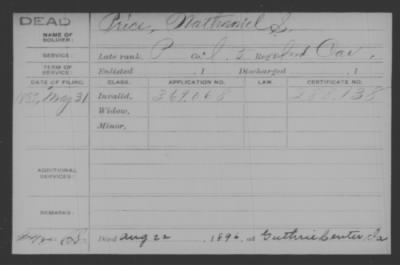 DEAD
Price, Nathaniel S.
NAME OF SOLDIER:
SERVICE: Late rank, P Co. I, 3 Reg't Cav.,
TERM OF SERVICE: Enlisted 1 Discharged 1
DATE OF FILING. CLASS. APPLICATION NO. LAW. CERTIFICATE NO.
May 31 Invalid, 369,068
Widow,
Minor,
ADDITIONAL SERVICES:
REMARKS:
Died Aug 22, 1896, at Guthrie Center, Ia